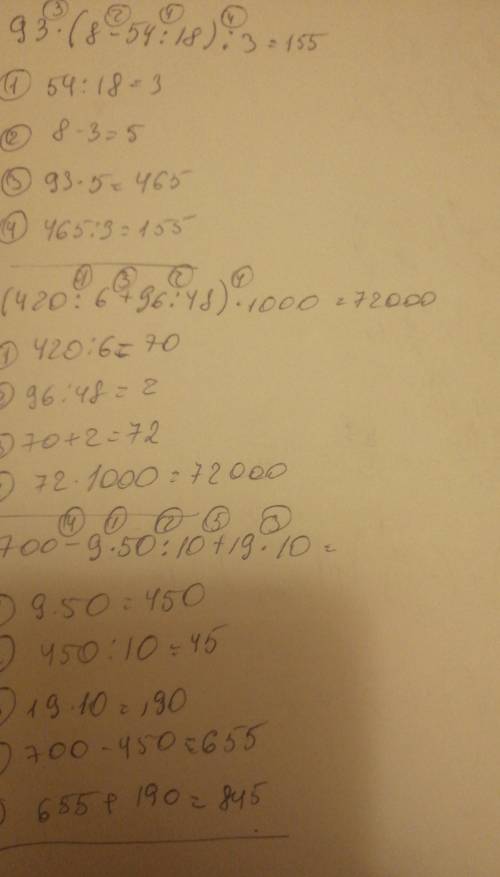 ③ ② ① ④
93·(8-54:18):3=155
① 54:18=3
② 8-3=5
③ 93·5=465
④ 465:3=155
① ③ ② ④
(420:6+96:48)·1000=72000
① 420:6=70
96:48=2
70+2=72
72·1000=72000
④ ① ② ⑤ ③
700-9·50:10+19·10=
9·50=450
450:10=45
19·10=190
700-450=655
655+190=845